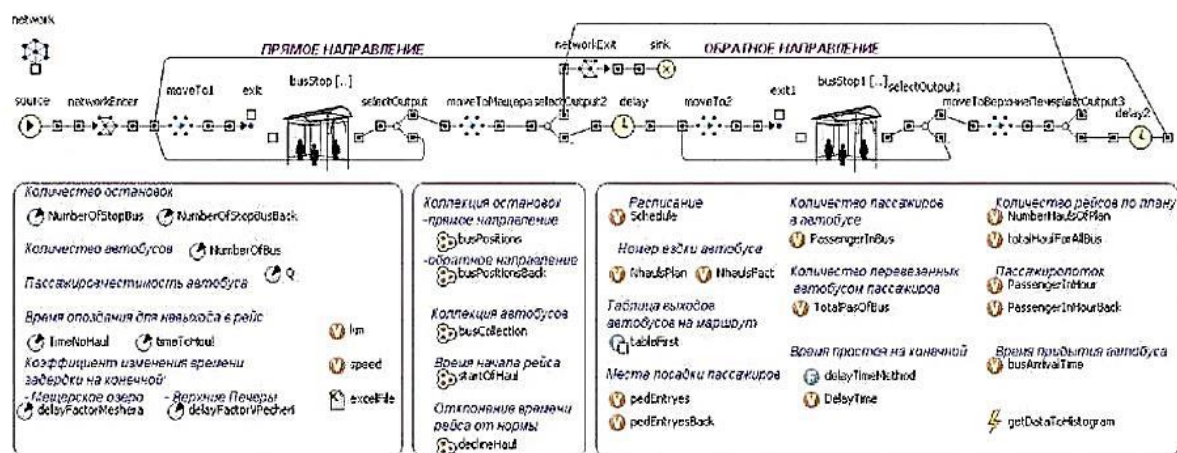 network
ПРЯМОЕ НАПРАВЛЕНИЕ
networkExit
sink
ОБРАТНОЕ НАПРАВЛЕНИЕ
source
networkEnter
moveTo1
exit
busStop [..]
selectOutput
moveToМащера
selectOutput2
delay
moveTo2
exit1
busStop1 [..]
selectOutput1
moveToВерхниеПечеры
delay2
Количество остановок
NumberOfStopBus
NumberOfStopBusBack
Количество автобусов
NumberOfBus
Q
Пассажировместимость автобуса
Время опоздания для невыхода в рейс
TimeNoHaul
timeToHoul
km
Коэффициент изменения времени
задержки на конечной:
speed
- Мещерское озеро
- Верхние Печеры
delayFactorMeshera
delayFactorVPecheri
excelFile
Коллекция остановок
-прямое направление
busPositions
-обратное направление
busPositionsBack
Коллекция автобусов
busCollection
Время начала рейса
startOfHaul
Отклонение времени
рейса от нормы
declineHaul
Расписание
Schedule
Номер ездки автобуса
NhaulsPlan
NhaulsFact
Таблица выходов
автобусов на маршрут
tableFirst
Места посадки пассажиров
pedEntryes
pedEntryesBack
Количество пассажиров
в автобусе
PassengerInBus
Количество перевезенных
автобусом пассажиров
TotalPasOfBus
Время простоя на конечной
delayTimeMethod
DelayTime
Количество рейсов по плану
NumberHaulsOfPlan
totalHaulForAllBus
Пассажиропоток
PassengerInHour
PassengerInHourBack
Время прибытия автобуса
busArrivalTime
getDataToHistogram